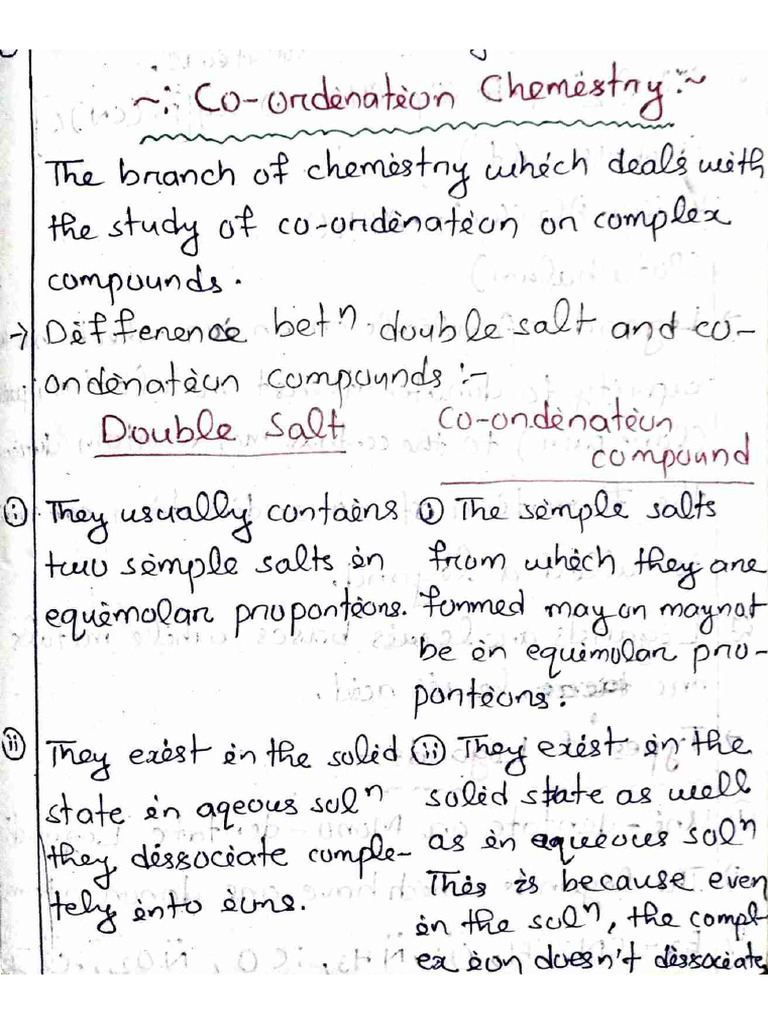 ~: Co-ordination Chemistry :~
The branch of chemistry which deals with
the study of co-ordination or complex
compounds.
→ Difference betⁿ double salt and co-
ordination compounds :-
Double Salt
Co-ordination
compound
(i) They usually contains
two simple salts in
equimolar proportions.
(i) The simple salts
from which they are
formed may or maynot
be in equimolar pro-
portions.
(ii) They exist in the solid
state in aqeous solⁿ
they dissociate comple-
tely into ions.
(ii) They exist in the
solid state as well
as in aqueous solⁿ
This is because even
in the solⁿ, the compl-
ex ion doesn't dissociate